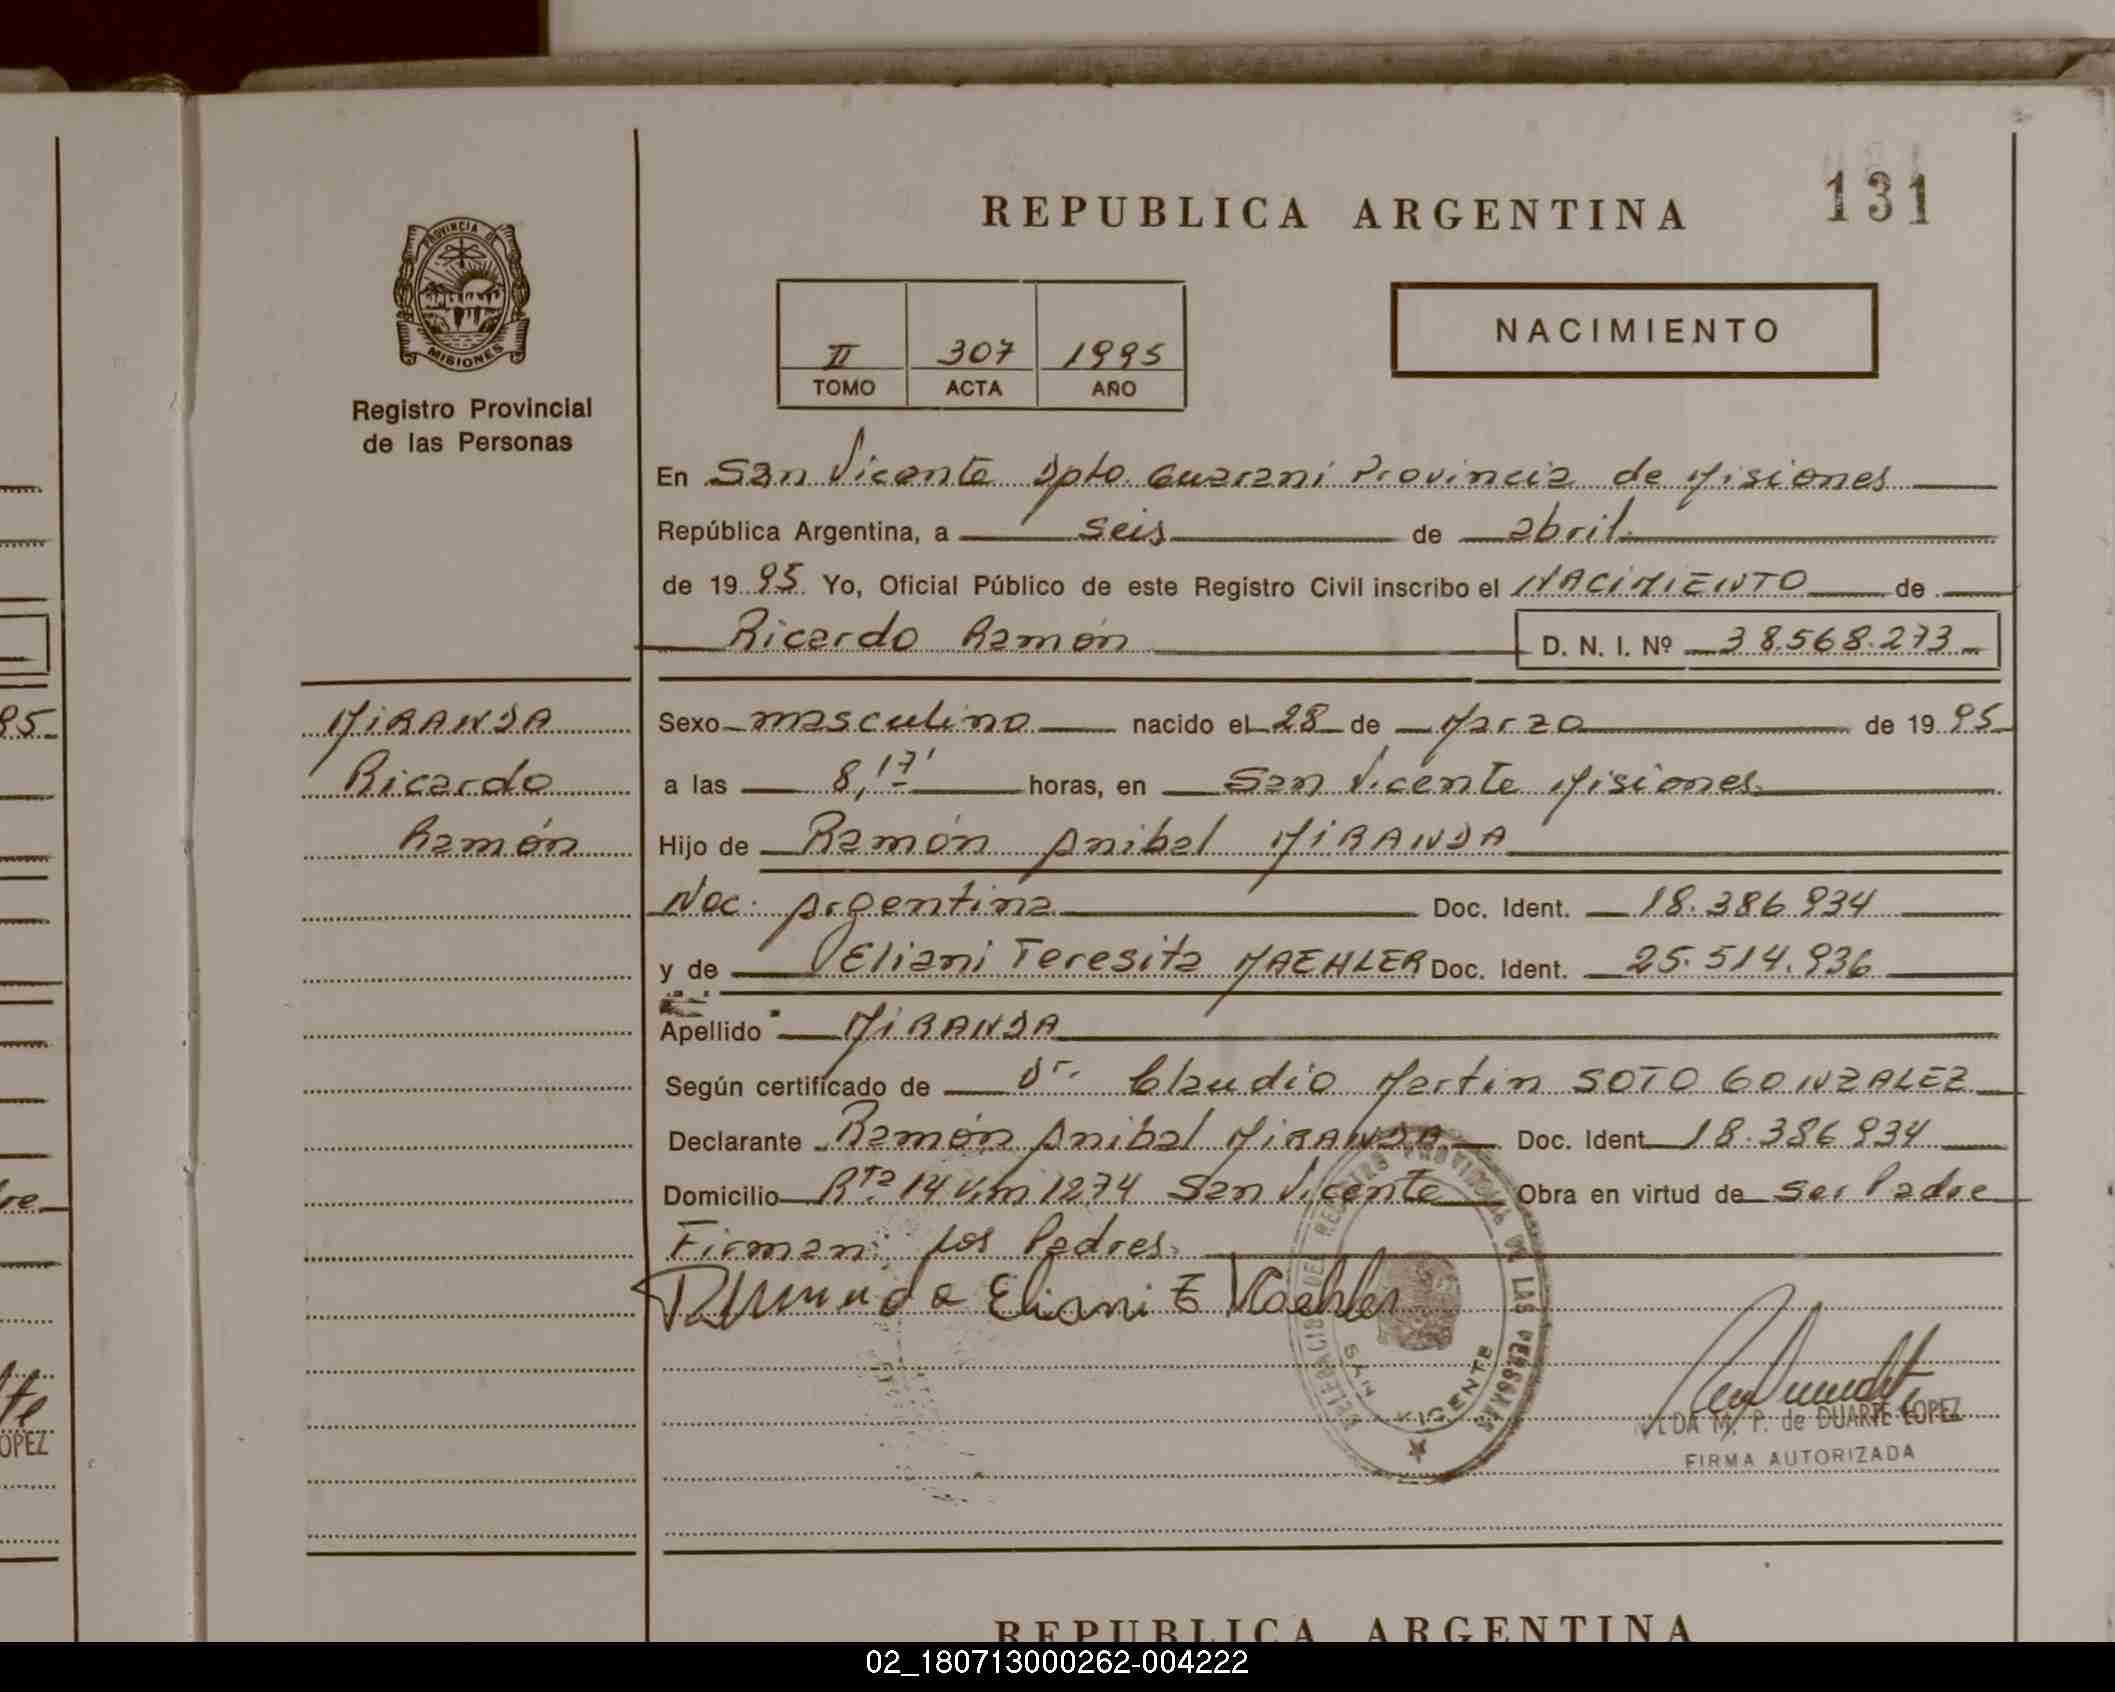 131
REPUBLICA ARGENTINA
PROVINCIA DE
MISIONES
Registro Provincial
de las Personas
II 307 1995
TOMO ACTA AÑO
NACIMIENTO
En San Vicente Dpto. Guaraní Provincia de Misiones
República Argentina, a seis de abril
de 1995 Yo, Oficial Público de este Registro Civil inscribo el NACIMIENTO de
Ricardo Ramón D. N. I. Nº 38.568.273
MIRANDA
Ricardo
Ramón
Sexo masculino nacido el 28 de Marzo de 1995
a las 8,17' horas, en San Vicente Misiones
Hijo de Ramón Anibal MIRANDA
Nac. Argentina Doc. Ident. 18.386.934
y de Eliani Teresita MAEHLER Doc. Ident. 25.514.936
Apellido MIRANDA
Según certificado de Dr. Claudio Martin SOTO GONZALEZ
Declarante Ramón Anibal MIRANDA Doc. Ident. 18.386.934
Domicilio Rta. 14 Km 1274 San Vicente Obra en virtud de ser Padre
Firman: los Padres.
Eliani T Maehler
DELEGACION DEL REGISTRO PROVINCIAL DE LAS PERSONAS
SAN VICENTE
M. P. de DUARTE LOPEZ
FIRMA AUTORIZADA
REPUBLICA ARGENTINA
95
re
te
OPEZ
02_180713000262-004222